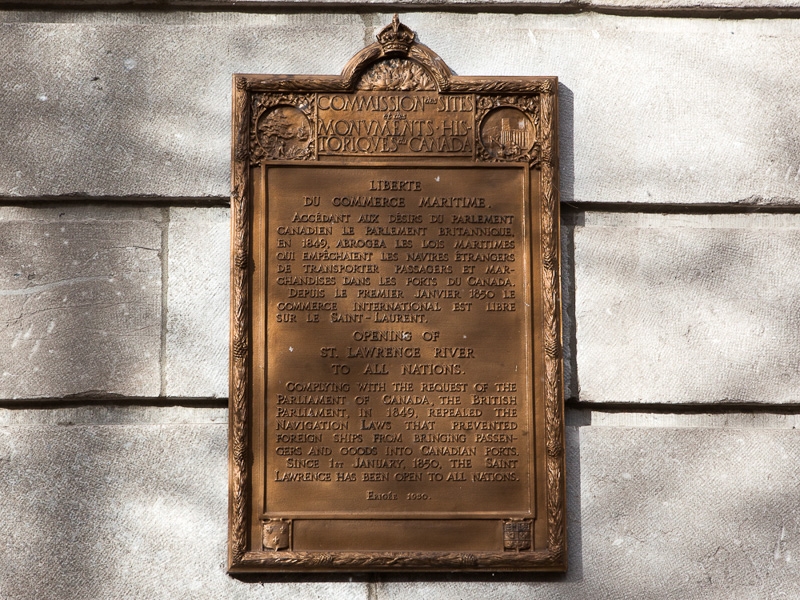 COMMISSION des SITES
et des
MONVMENTS HIS-
TORIQVES du CANADA
LIBERTE
DU COMMERCE MARITIME.
ACCÉDANT AUX DÉSIRS DU PARLEMENT
CANADIEN LE PARLEMENT BRITANNIQUE,
EN 1849, ABROGEA LES LOIS MARITIMES
QUI EMPÊCHAIENT LES NAVIRES ÉTRANGERS
DE TRANSPORTER PASSAGERS ET MAR-
CHANDISES DANS LES PORTS DU CANADA.
DEPUIS LE PREMIER JANVIER 1850 LE
COMMERCE INTERNATIONAL EST LIBRE
SUR LE SAINT-LAURENT.
OPENING OF
ST. LAWRENCE RIVER
TO ALL NATIONS.
COMPLYING WITH THE REQUEST OF THE
PARLIAMENT OF CANADA, THE BRITISH
PARLIAMENT, IN 1849, REPEALED THE
NAVIGATION LAWS THAT PREVENTED
FOREIGN SHIPS FROM BRINGING PASSEN-
GERS AND GOODS INTO CANADIAN PORTS.
SINCE 1ST JANUARY, 1850, THE SAINT
LAWRENCE HAS BEEN OPEN TO ALL NATIONS.